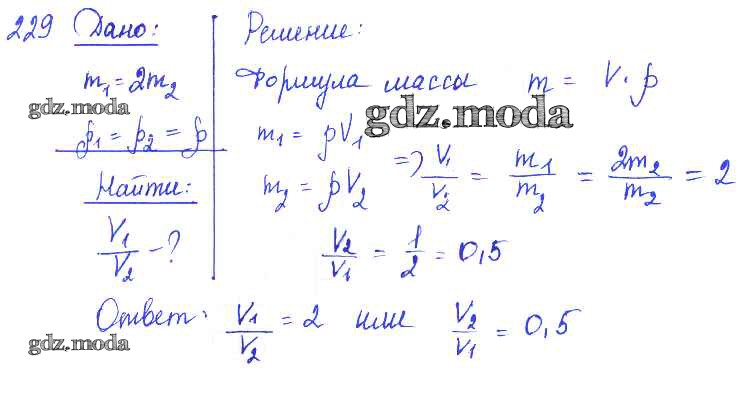 229 Дано:
m₁ = 2m₂
gdz.moda
ρ₁ = ρ₂ = ρ
Найти:
V₁/V₂ - ?
Решение:
Формула массы m = V · ρ
gdz.moda
m₁ = ρV₁
m₂ = ρV₂
=> V₁/V₂ = m₁/m₂ = 2m₂/m₂ = 2
V₂/V₁ = 1/2 = 0,5
Ответ: V₁/V₂ = 2 или V₂/V₁ = 0,5
gdz.moda